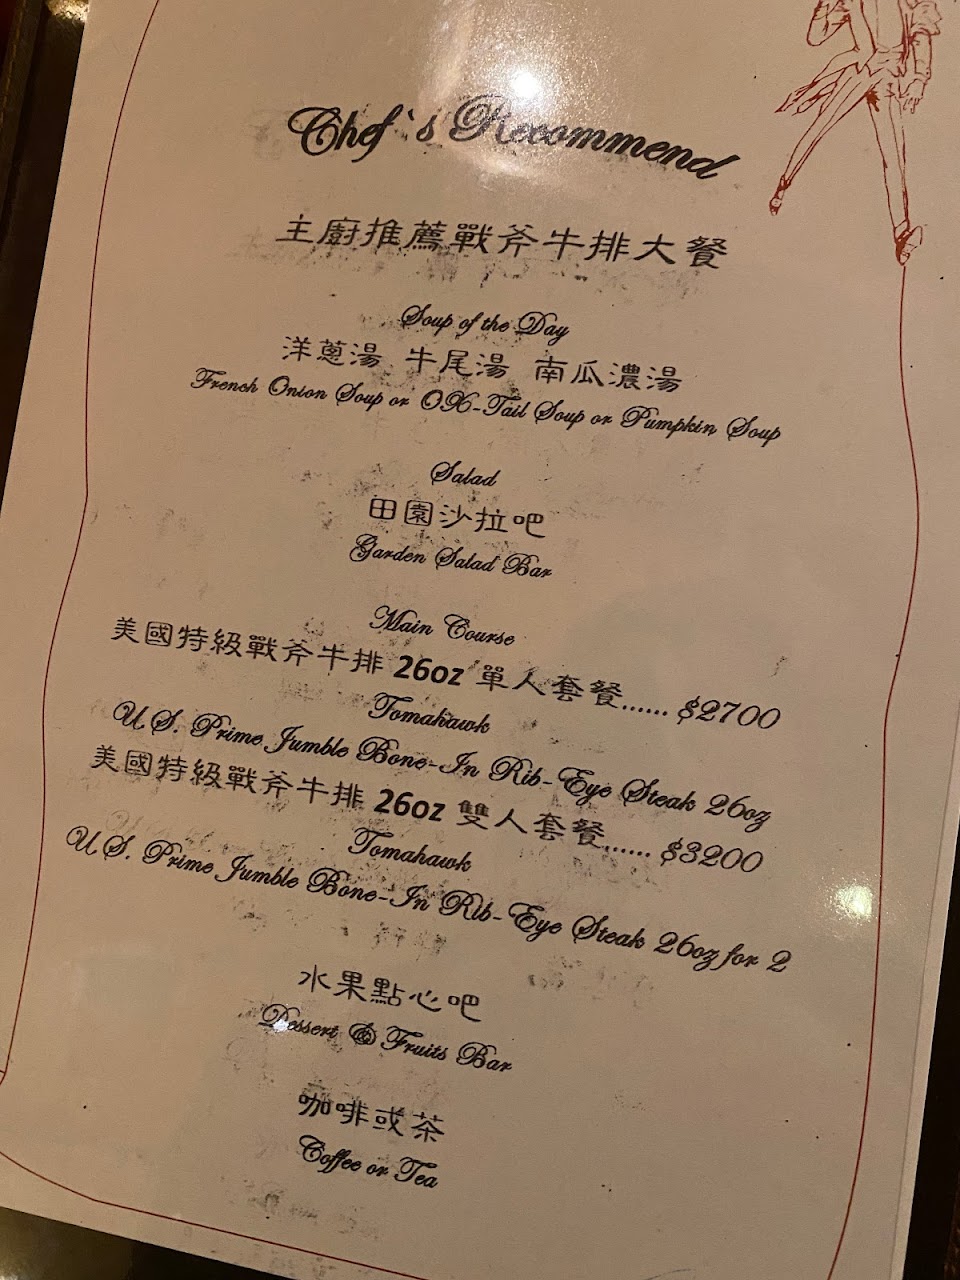 Chef`s Recommend
主廚推薦戰斧牛排大餐
Soup of the Day
洋蔥湯 牛尾湯 南瓜濃湯
French Onion Soup or OX-Tail Soup or Pumpkin Soup
Salad
田園沙拉吧
Garden Salad Bar
Main Course
美國特級戰斧牛排 26oz 單人套餐...... $2700
Tomahawk
U.S. Prime Jumble Bone-In Rib-Eye Steak 26oz
美國特級戰斧牛排 26oz 雙人套餐...... $3200
Tomahawk
U.S. Prime Jumble Bone-In Rib-Eye Steak 26oz for 2
水果點心吧
Dessert & Fruits Bar
咖啡或茶
Coffee or Tea